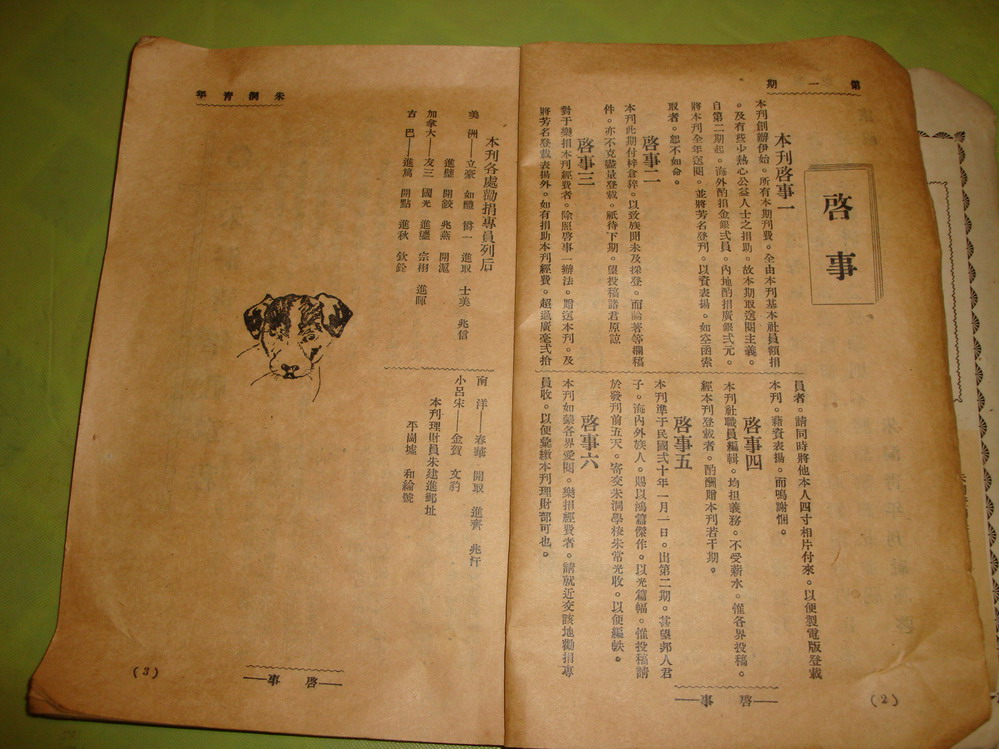 第一期
啓事
本刊啓事一
本刊創辦伊始。所有本期刊費。全由本刊基本社員領捐
。及有些少熱心公益人士之捐助。故本期取送閱主義。
自第二期起。海外酌捐金銀弍員。內地酌捐廣銀弍元。
將本刊全年送閱。並將芳名登刊。以資表揚。如空函索
取者。恕不如命。
啓事二
本刊此期付梓倉猝。以致族聞未及採登。而論著等欄稿
件。亦不克盡量登載。祇待下期。望投稿諸君原諒
啓事三
對于樂捐本刊經費者。除照啓事一辦法。贈送本刊。及
將芳名登載表揚外。如有捐助本刊經費。超過廣毫弍拾
員者。請同時將他本人四寸相片付來。以便製電版登載
本刊。藉資表揚。而鳴謝悃。
啓事四
本刊社職員編輯。均担義務。不受薪水。惟各界投稿。
經本刊登載者。酌酬贈本刊若干期。
啓事五
本刊準于民國弍十年一月一日。出第二期。甚望邦人君
子。海內外族人。賜以鴻篇傑作。以光篇幅。惟投稿請
於發刊前五天。寄交朱洞學校朱常光收。以便編輯。
啓事六
本刊如蒙各界愛閱。樂捐經費者。請就近交該地勸捐專
員收。以便彙繳本刊理財部可也。
啓事
(2)
朱洞青年
本刊各處勸捐專員列后
美洲——立豪 如醴 進取 士美 兆信
進璧 開餃 兆燕 開滬
加拿大——友三 國光 進璁 宗栩 進暉
古巴——進篤 開點 進秋 欽銓
南洋——春華 開取 進齊 兆汗
小呂宋——金賀 文豹
本刊理財員朱建進郵址
平崗墟 和綸號
啓事
(3)